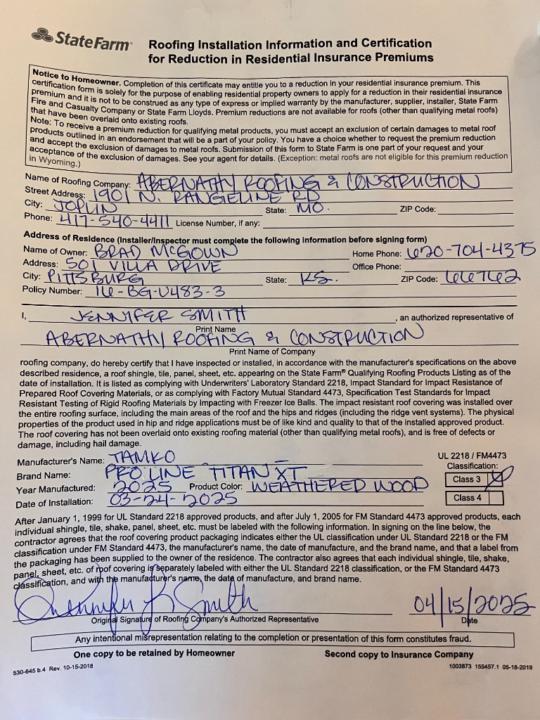 StateFarm®
Roofing Installation Information and Certification
for Reduction in Residential Insurance Premiums
Notice to Homeowner. Completion of this certificate may entitle you to a reduction in your residential insurance premium. This
certification form is solely for the purpose of enabling residential property owners to apply for a reduction in their residential insurance
premium and it is not to be construed as any type of express or implied warranty by the manufacturer, supplier, installer, State Farm
Fire and Casualty Company or State Farm Lloyds. Premium reductions are not available for roofs (other than qualifying metal roofs)
that have been overlaid onto existing roofs.
Note: To receive a premium reduction for qualifying metal products, you must accept an exclusion of certain damages to metal roof
products outlined in an endorsement that will be a part of your policy. You have a choice whether to request the premium reduction
and accept the exclusion of damages to metal roofs. Submission of this form to State Farm is one part of your request and your
acceptance of the exclusion of damages. See your agent for details. (Exception: metal roofs are not eligible for this premium reduction
in Wyoming.)
Name of Roofing Company: ABERNATHY ROOFING & CONSTRUCTION
Street Address: 1901 N. RANGELINE RD
City: JOPLIN State: MO. ZIP Code:
Phone: 417-540-4411 License Number, if any:
Address of Residence (Installer/Inspector must complete the following information before signing form)
Name of Owner: BRAD McGOWN Home Phone: 620-704-4375
Address: 501 VILLA DRIVE Office Phone:
City: PITTSBURG State: KS. ZIP Code: 66762
Policy Number: 16-BG-U483-3
I, JENNIFER SMITH, an authorized representative of
Print Name
ABERNATHY ROOFING & CONSTRUCTION
Print Name of Company
roofing company, do hereby certify that I have inspected or installed, in accordance with the manufacturer's specifications on the above
described residence, a roof shingle, tile, panel, sheet, etc. appearing on the State Farm® Qualifying Roofing Products Listing as of the
date of installation. It is listed as complying with Underwriters' Laboratory Standard 2218, Impact Standard for Impact Resistance of
Prepared Roof Covering Materials, or as complying with Factory Mutual Standard 4473, Specification Test Standards for Impact
Resistant Testing of Rigid Roofing Materials by Impacting with Freezer Ice Balls. The impact resistant roof covering was installed over
the entire roofing surface, including the main areas of the roof and the hips and ridges (including the ridge vent systems). The physical
properties of the product used in hip and ridge applications must be of like kind and quality to that of the installed approved product.
The roof covering has not been overlaid onto existing roofing material (other than qualifying metal roofs), and is free of defects or
damage, including hail damage.
Manufacturer's Name: TAMKO UL 2218 / FM4473
Brand Name: PROLINE TITAN XT Classification:
Year Manufactured: 2025 Product Color: WEATHERED WOOD Class 3
Date of Installation: 03-24-2025 Class 4
After January 1, 1999 for UL Standard 2218 approved products, and after July 1, 2005 for FM Standard 4473 approved products, each
individual shingle, tile, shake, panel, sheet, etc. must be labeled with the following information. In signing on the line below, the
contractor agrees that the roof covering product packaging indicates either the UL classification under UL Standard 2218 or the FM
classification under FM Standard 4473, the manufacturer's name, the date of manufacture, and the brand name, and that a label from
the packaging has been supplied to the owner of the residence. The contractor also agrees that each individual shingle, tile, shake,
panel, sheet, etc. of roof covering is separately labeled with either the UL Standard 2218 classification, or the FM Standard 4473
classification, and with the manufacturer's name, the date of manufacture, and brand name.
Jennifer L Smith 04/15/2025
Original Signature of Roofing Company's Authorized Representative Date
Any intentional misrepresentation relating to the completion or presentation of this form constitutes fraud.
One copy to be retained by Homeowner Second copy to Insurance Company
530-645 b.4 Rev. 10-15-2018 1003873 155457.1 05-18-2019